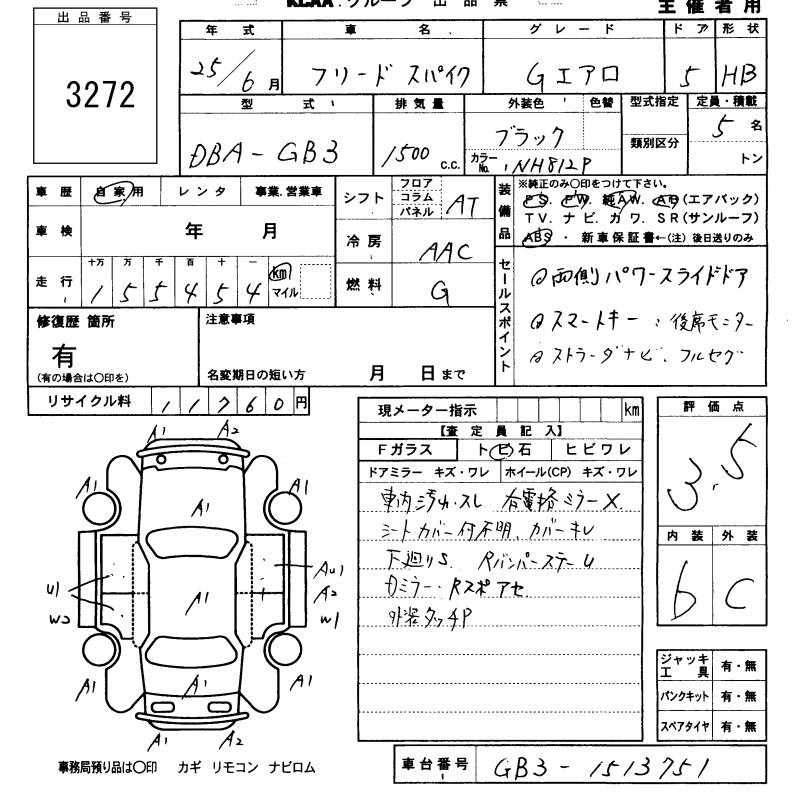 KCAA グループ 出品票 主催者用
出品番号
3272
年式 車名 グレード ドア 形状
25/6月 フリード スパイク Gエアロ 5 HB
型式 排気量 外装色 色替 型式指定 定員・積載
DBA-GB3 1500 c.c. ブラック 類別区分 5名
カラーNo. NH812P トン
車歴 自家用 レンタ 事業.営業車
シフト フロア コラム パネル AT
装備品 ※純正のみ〇印をつけて下さい。
PS. PW. 純AW. AB(エアバック)
TV. ナビ. カワ. SR(サンルーフ)
ABS ・ 新車保証書←(注)後日送りのみ
車検 年 月
冷房 AAC
走行 十万 万 千 百 十 一
1 5 5 4 5 4 km マイル
燃料 G
セールスポイント
両側パワースライドドア
スマートキー 後席モニター
ストラーダナビ、フルセグ
修復歴 箇所
有
(有の場合は〇印を)
注意事項
名変期日の短い方 月 日まで
リサイクル料 11760円
現メーター指示 km
【査定員記入】
Fガラス ト ビ 石 ヒビワレ
ドアミラー キズ・ワレ ホイール(CP) キズ・ワレ
車内汚れ・スレ 右電格ミラーX
シートカバー付不明、カバーキレ
下廻りS. RバンパーステーU
Dミラー・Rスポアセ
外装タッチP
評価点
3.5
内装 外装
b C
A1 A2
A1 A1
A1
U1 AU1
A1 A2
W2 W1
A1 A1 A1
A1 A2
ジャッキ工具 有・無
パンクキット 有・無
スペアタイヤ 有・無
事務局預り品は〇印 カギ リモコン ナビロム
車台番号 GB3-1513751